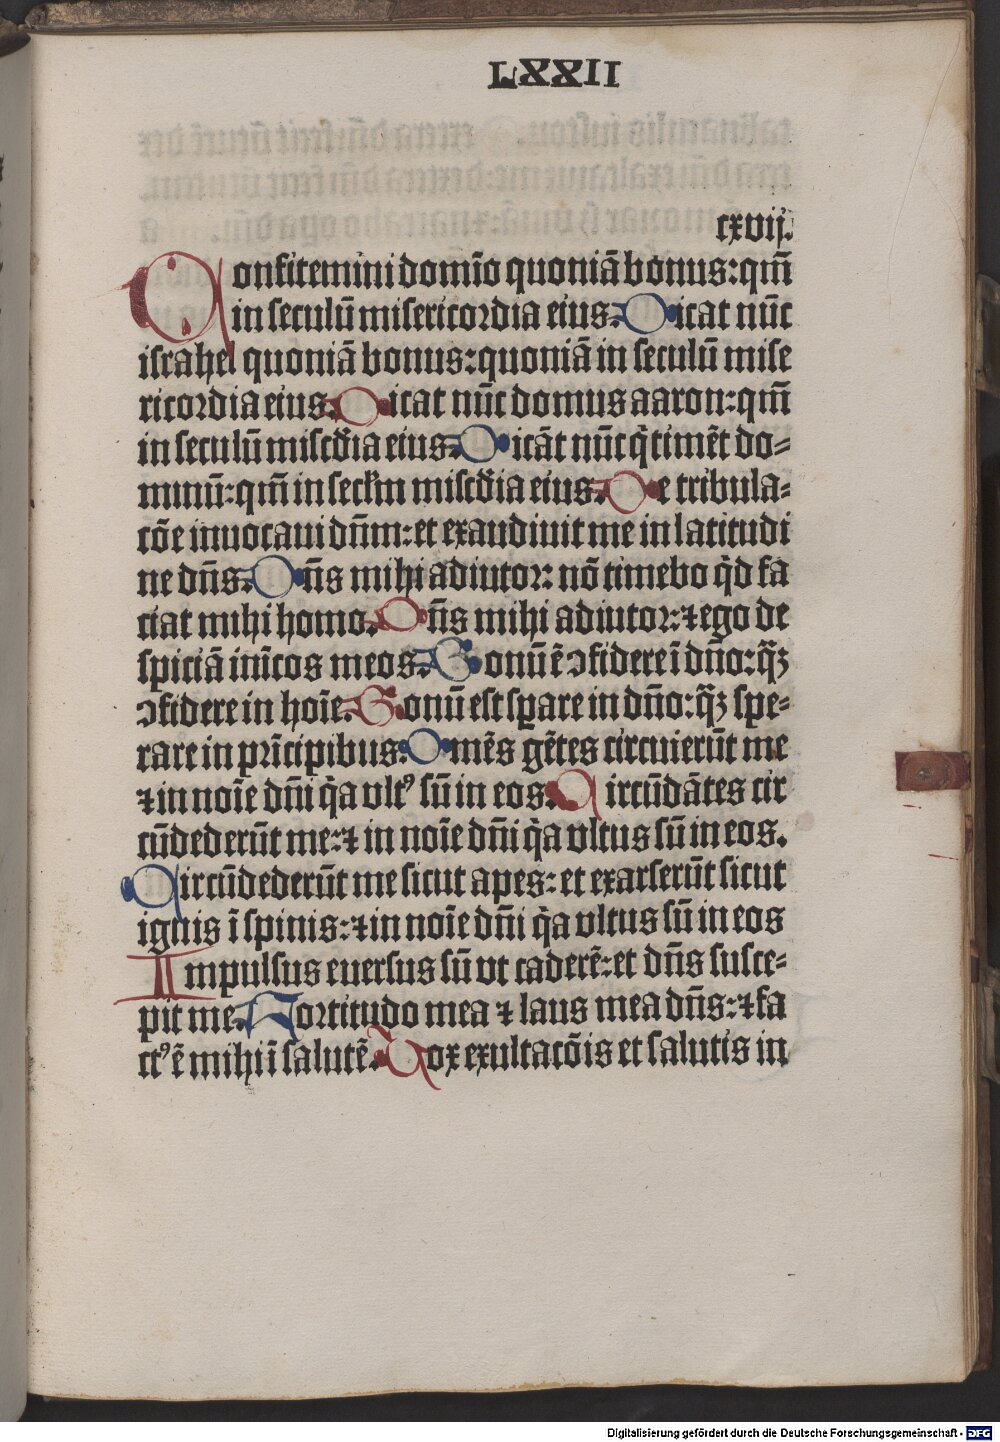 LXXII
cxvij.
Confitemini domĩo quoniã bonus: qm̃
in seculũ misericordia eius. Dicat nũc
israhel quoniã bonus: quoniã in seculũ mise
ricordia eius. Dicat nũc domus aaron: qm̃
in seculũ miſcðia eius. Dicãt nũc q̃ timẽt do⸗
minũ: qm̃ in seclm̃ miſcðia eius. De tribula⸗
cõe inuocaui dñm: et exaudiuit me in latitudi
ne dñs. Dñs mihi adiutor: nõ timebo q̃d fa
ciat mihi homo. Dñs mihi adiutor: ⁊ ego de
spiciã inĩcos meos. Bonũ ẽ ↄfidere ĩ dño: q̃ꝫ
ↄfidere in hoĩe. Bonũ est sꝑare in dño: q̃ꝫ spe⸗
rare in prĩcipibus. Omẽs gẽtes circuierũt me
⁊ in noĩe dñi q̃a vltꝰ sũ in eos. Circũdãtes cir
cũdederũt me: ⁊ in noĩe dñi q̃a vltus sũ in eos.
Circũdederũt me sicut apes: et exarserũt sicut
ignis ĩ spinis: ⁊ in noĩe dñi q̃a vltus sũ in eos
Impulsus euersus sũ vt caderẽ: et dñs susce⸗
pit me. Fortitudo mea ⁊ laus mea dñs: ⁊ fa
ctꝰ ẽ mihi ĩ salutẽ. Vox exultacõis et salutis in
Digitalisierung gefördert durch die Deutsche Forschungsgemeinschaft - DFG